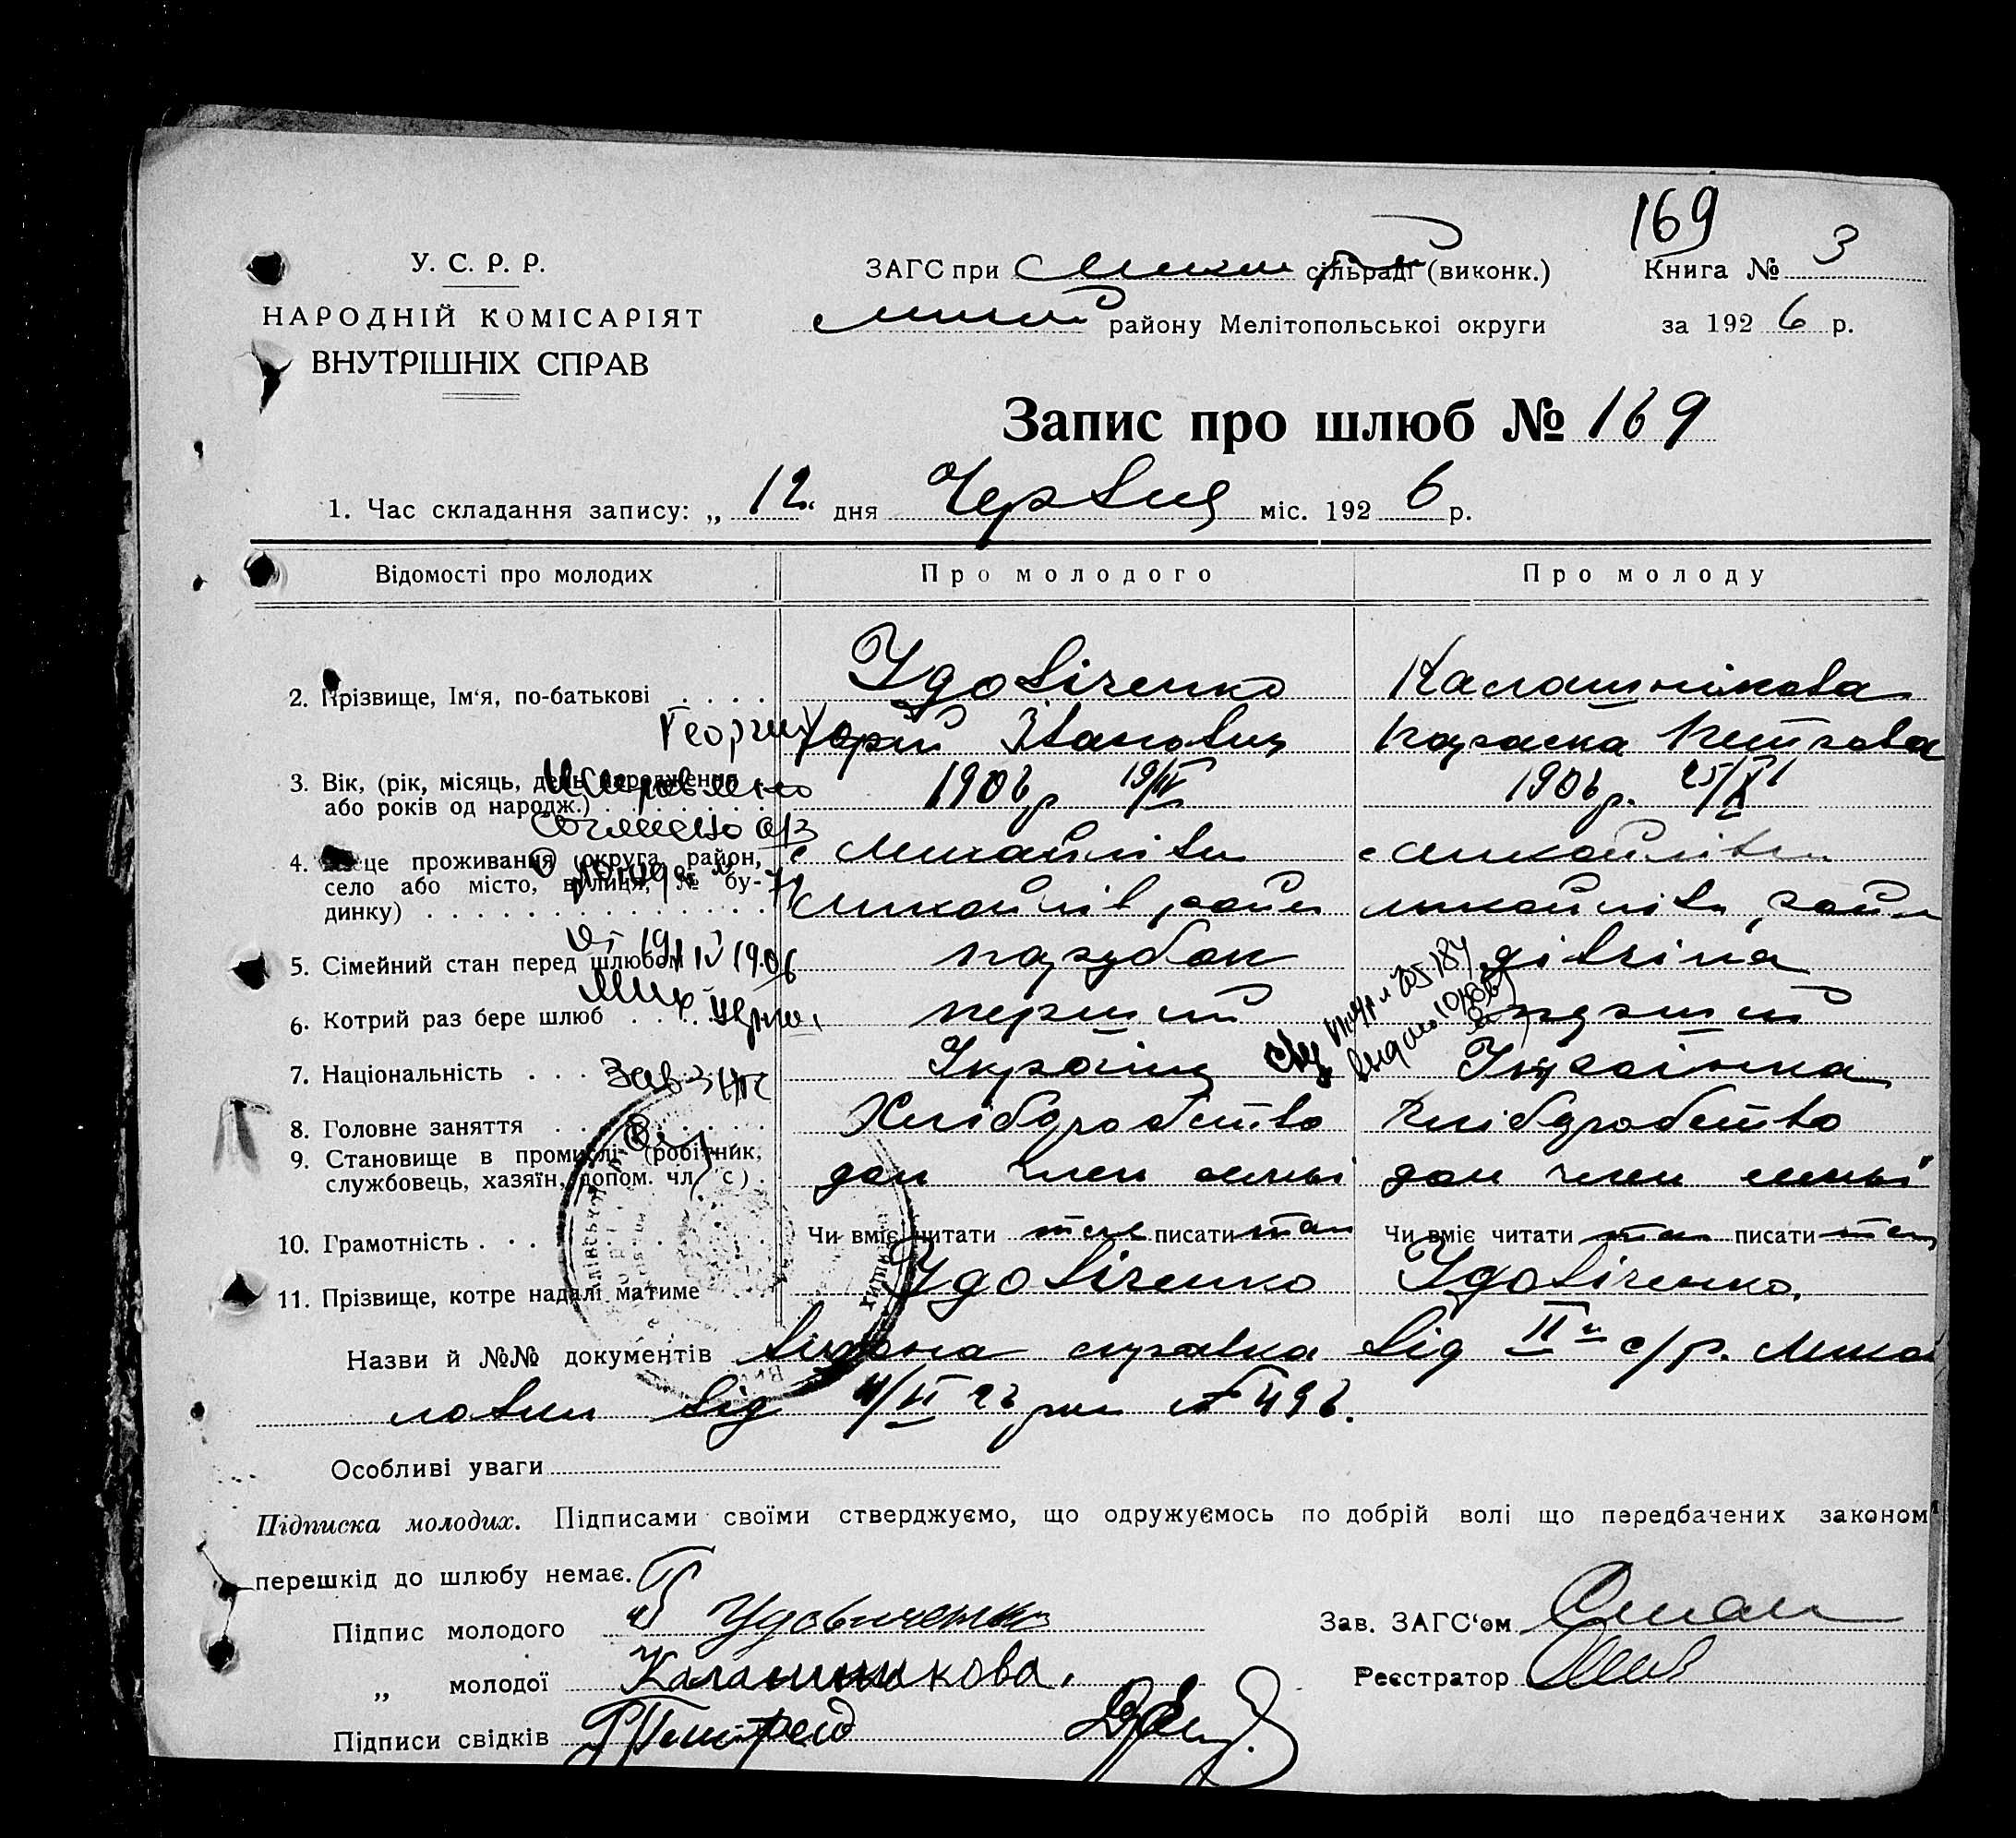 169
У. С. Р. Р.
НАРОДНІЙ КОМІСАРІЯТ
ВНУТРІШНІХ СПРАВ
ЗАГС при сільраді (виконк.) Книга № 3
району Мелітопольської округи за 1926 р.
Запис про шлюб № 169
1. Час складання запису: „12" дня Червця міс. 1926 р.
Відомості про молодих Про молодого Про молоду
2. Прізвище, Ім'я, по-батькові . . . . Удовіченко Калашнікова
Георгий Юрій Іванович Параска Петрова
3. Вік, (рік, місяць, день народження або років од народж.) 1906 р 19/IV 1906 р. 25/X
Исправлено
4. Місце проживання (округа, район, село або місто, вулиця, № будинку) с Михайлівки с Михайлівки
Михайлів район Михайлівк район
от 19/IV 1906
5. Сімейний стан перед шлюбом парубок дівчина
6. Котрий раз бере шлюб . . . . перший перший
7. Національність . . . Українц Українка
Зав ЗАГС
8. Головне заняття . . . Хліборобство Хліборобство
9. Становище в промислі (робітник, службовець, хазяїн, допом. чл. с.) доп член семьі доп член семьі
10. Грамотність . . . Чи вміє читати так писати так Чи вміє читати так писати так
11. Прізвище, котре надалі матиме Удовіченко Удовіченко.
Назви й №№ документів видана справка від II с/р. Михайловки від II 26 № 496.
Особливі уваги
Підписка молодих. Підписами своїми стверджуємо, що одружуємось по добрій волі що передбачених законом
перешкід до шлюбу немає.
Підпис молодого Удовиченко Зав. ЗАГС'ом
„ молодої Калашникова. Реєстратор
Підписи свідків